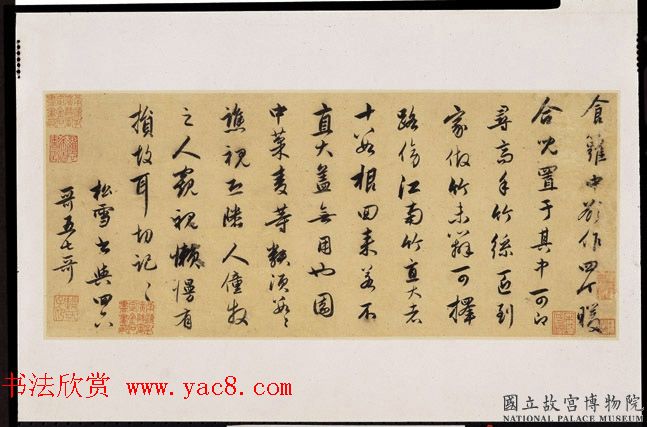 中欲作四个暖
合儿置于其中可即
尋高手竹絲匠到
家做竹未辦可擇
路傍江南竹直大者
十數根回來若不
直大蓋無用也園
中菜麦等
視 人僮牧
之人窺視懶慢有
損故耳切記〻
松雪書與四六
哥五七哥
书法欣赏 www.yac8.com
國立故宮博物院
NATIONAL PALACE MUSEUM